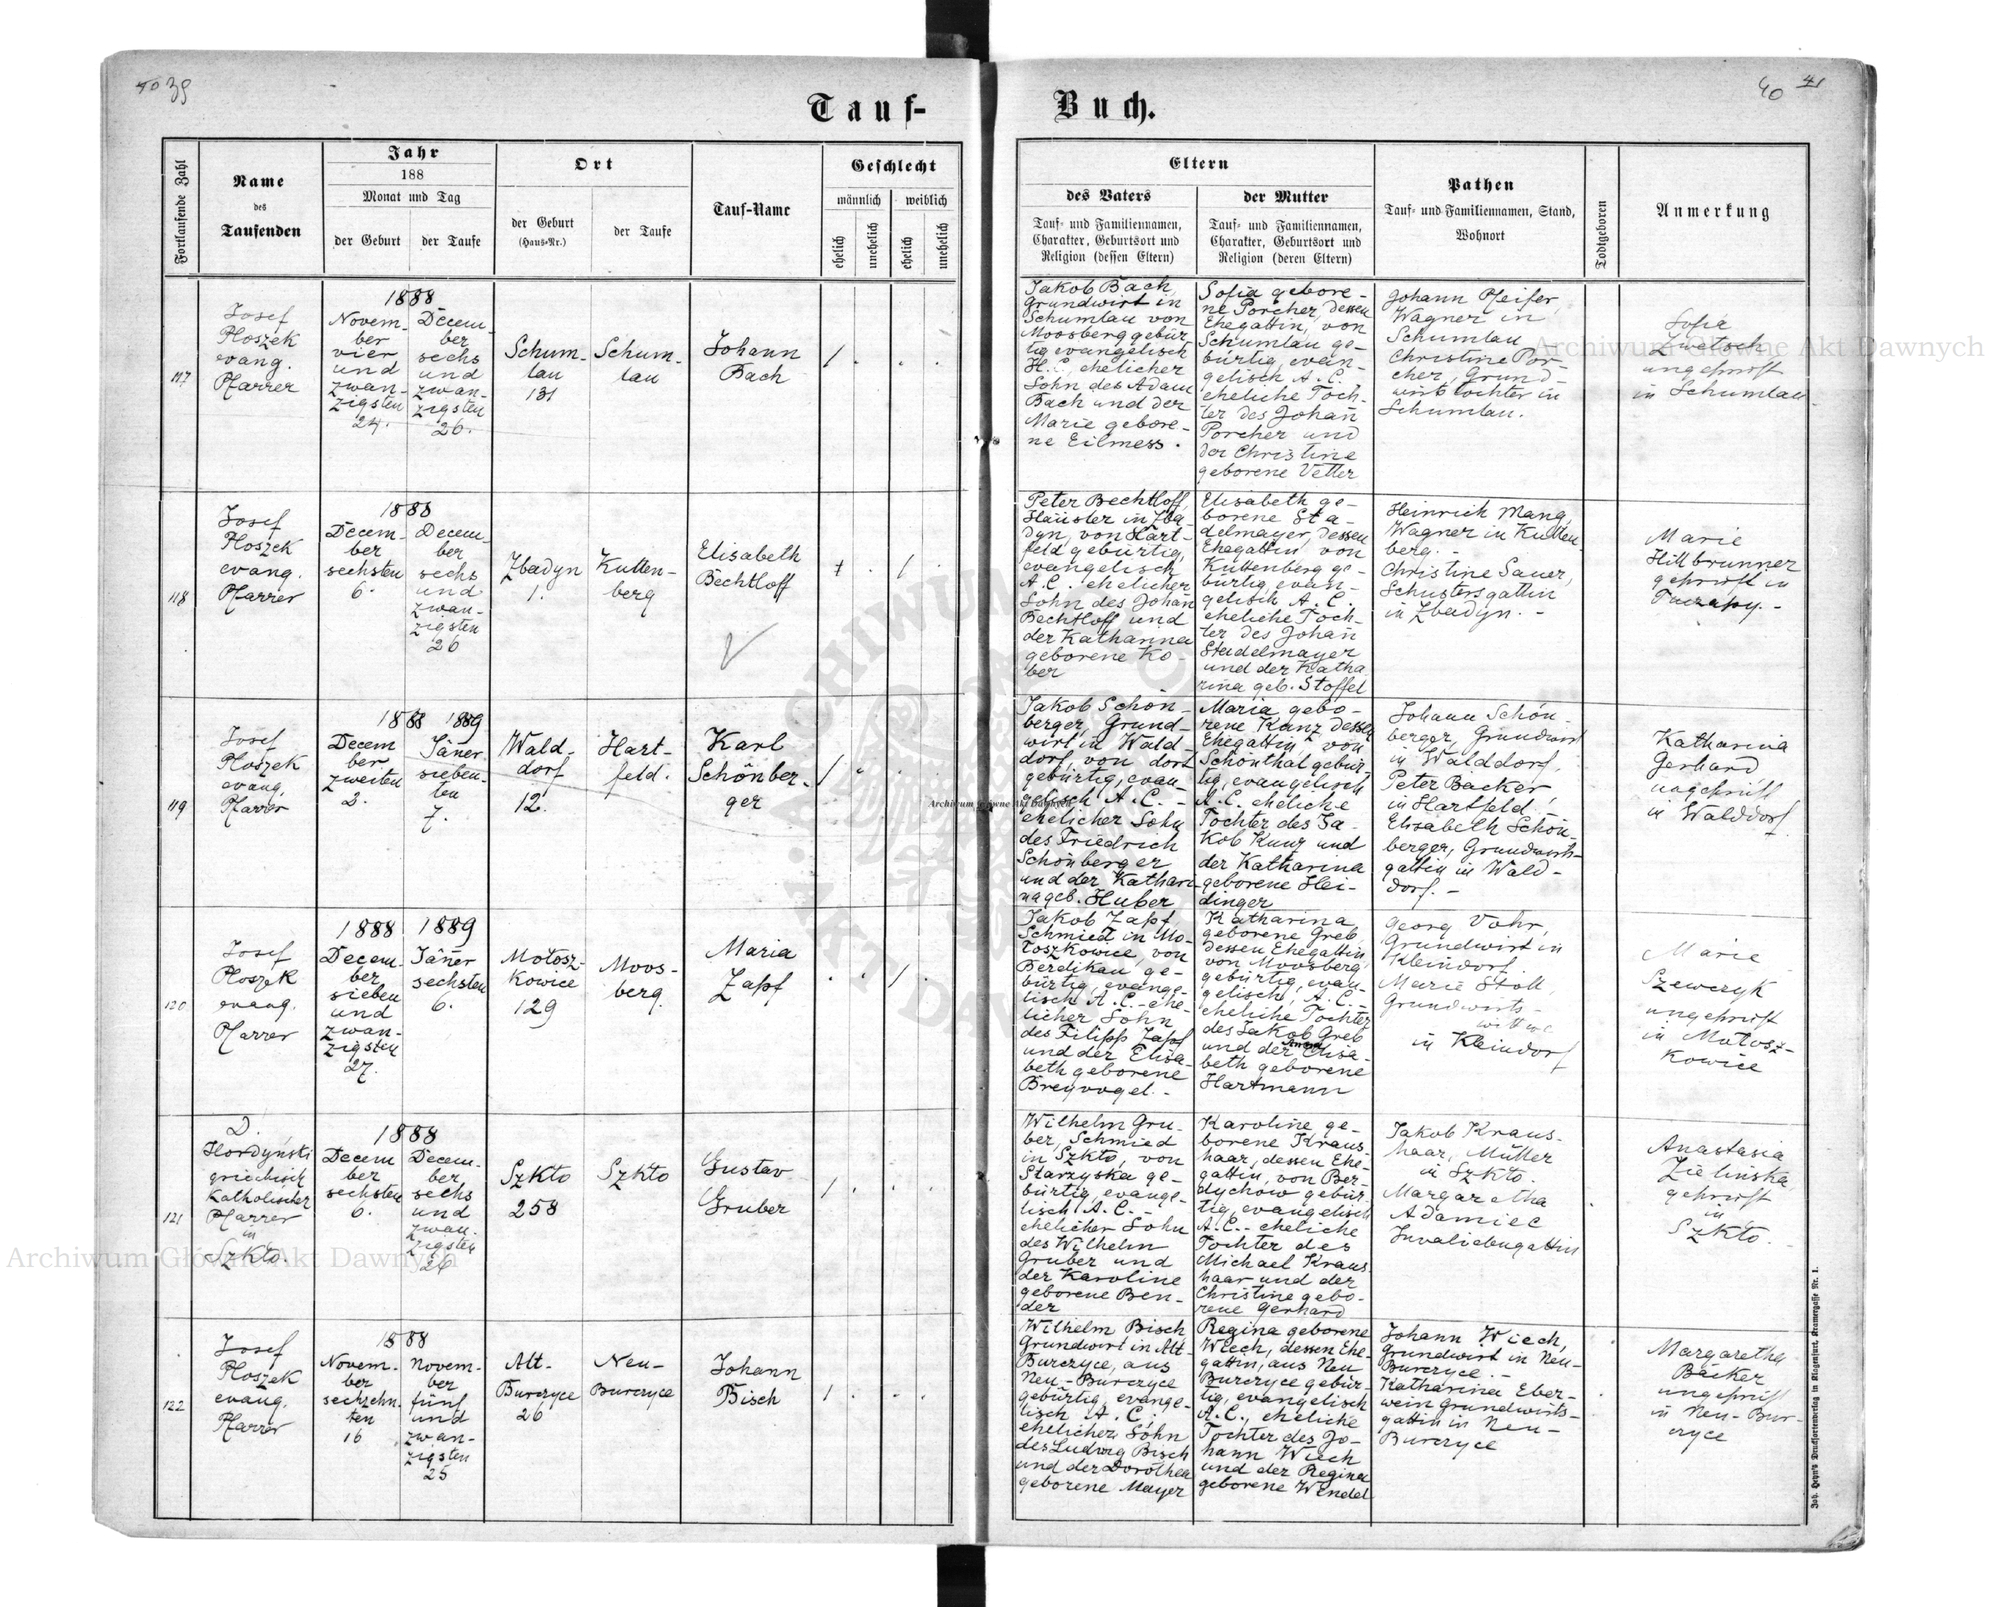 40 39
40 41
Tauf-
Buch.
Fortlaufende Zahl
Name
des
Taufenden
Jahr
188
Monat und Tag
der Geburt
der Taufe
Ort
der Geburt
(Haus-Nr.)
der Taufe
Tauf-Name
Geschlecht
männlich
weiblich
ehelich
unehelich
ehelich
unehelich
Eltern
des Vaters
Tauf- und Familiennamen,
Charakter, Geburtsort und
Religion (dessen Eltern)
der Mutter
Tauf- und Familiennamen,
Charakter, Geburtsort und
Religion (deren Eltern)
Pathen
Tauf- und Familiennamen, Stand,
Wohnort
Todtgeboren
Anmerkung
117
Josef
Ploszek
evang.
Pfarrer
1888
Novem-
ber
vier
und
zwan-
zigsten
24.
Decem-
ber
sechs
und
zwan-
zigsten
26.
Schum-
lau
131
Schum-
lau
Johann
Bach
Jakob Bach,
Grundwirt in
Schumlau von
Moosberg gebür-
tig evangelisch
H.C., ehelicher
Sohn des Adam
Bach und der
Marie gebore-
ne Eilmess.
Sofia gebore-
ne Porcher, dessen
Ehegattin, von
Schumlau ge-
bürtig, evan-
gelisch A.C.
eheliche Toch-
ter des Johañ
Porcher und
der Christine
geborene Vetter
Johann Pfeifer,
Wagner in
Schumlau
Christine Por-
cher, Grund-
wirtstochter in
Schumlau.
Sofia
Zwetsch
ungeprüft
in Schumlau
118
Josef
Ploszek
evang.
Pfarrer
1888
Decem-
ber
sechsten
6.
Decem-
ber
sechs
und
zwan-
zigsten
26
Zbadyn
1.
Kutten-
berg
Elisabeth
Bechtloff
Peter Bechtloff,
Häusler in Zba-
dyn, von Hart-
feld gebürtig,
evangelisch
A.C. ehelicher
Sohn des Johan
Bechtloff und
der Katharina
geborene Ko-
ber
Elisabeth ge-
borene Sta-
delmayer, dessen
Ehegattin von
Kuttenberg ge-
bürtig, evan-
gelisch A.C.
eheliche Toch-
ter des Johañ
Stadelmayer
und der Katha
rina geb. Stoffel
Heinrich Mang,
Wagner in Kutten
berg.-
Christine Sauer,
Schustersgattin
in Zbadyn.-
Marie
Hillbrunner
geprüft in
119
Josef
Ploszek
evang.
Pfarrer
1888 1889
Decem
ber
zweiten
2.
Jäner
sieben-
ten
7.
Wald-
dorf
12.
Hart-
feld.
Karl
Schönber-
ger
Jakob Schön-
berger, Grund-
wirt in Wald-
dorf, von dort
gebürtig, evan-
gelisch A.C.-
ehelicher Sohn
des Friedrich
Schönberger
und der Kathari-
na geb. Huber
Maria gebo-
rene Kunz dessen
Ehegattin, von
Schönthal gebür
tig, evangelisch
A.C. eheliche
Tochter des Ja-
kob Kunz und
der Katharina
geborene Hei-
dinger
Johann Schön-
berger, Grundwirt
in Walddorf,
Peter Bäcker,
in Hartfeld
Elisabeth Schön-
berger, Grundwirts-
gattin in Wald-
dorf.-
Katharina
Gerhard
ungeprüft
in Walddorf
120
Josef
Ploszek
evang.
Pfarrer
1888 1889
Decem-
ber
sieben
und
zwan-
zigsten
27.
Jäner
sechsten
6.
Motosz-
kowice
129
Moos-
berg
Maria
Zapf
Jakob Zapf
Schmied in Mo-
toszkowice, von
Berdikau ge-
bürtig, evange-
lisch A.C.- ehe-
licher Sohn
des Filipp Zapf
und der Elisa-
beth geborene
Breyvogel.-
Katharina
geborene Greb
dessen Ehegattin,
von Moosberg,
gebürtig, evan-
gelisch, A.C.-
eheliche Tochter
des Jakob Greb
und der Elisa-
beth geborene
Hartmann
Georg Vohr,
Grundwirt in
Kleindorf
Marie Stoll,
Grundwirts-
wittwe
in Kleindorf
Marie
Szewczyk
ungeprüft
in Motosz-
kowice
121
D.
Hordyński
griechisch
katholischer
Pfarrer
in
Szkto.
1888
Decem
ber
sechsten
6.
Decem-
ber
sechs
und
zwan-
zigsten
26
Szkto
258
Szkto
Gustav
Gruber
Wilhelm Gru-
ber, Schmied
in Szkto, von
Starzyska ge-
bürtig, evange-
lisch A.C.-
ehelicher Sohn
des Wilhelm
Gruber und
der Karoline
geborene Ben-
der
Karoline ge-
borene Kraus-
haar, dessen Ehe-
gattin, von Ber-
dychow gebür-
tig, evangelisch
A.C.- eheliche
Tochter des
Michael Kraus-
haar und der
Christine gebo-
rene Gerhard
Jakob Kraus-
haar, Müller
in Szkto.
Margaretha
Adamiec
Invalidengattin
Anastasia
Zielińska
geprüft
in
Szkto.
122
Josef
Ploszek
evang.
Pfarrer
1888
Novem-
ber
sechzehn-
ten
16
Novem-
ber
fünf
und
zwan-
zigsten
25
Alt-
Burczyce
26
Neu-
Burczyce
Johann
Bisch
Wilhelm Bisch,
Grundwirt in Alt
Burczyce, aus
Neu-Burczyce
gebürtig, evange-
lisch A.C.
ehelicher Sohn
des Ludwig Bisch
und der Dorothea
geborene Mayer
Regina geborene
Wiech, dessen Ehe-
gattin, aus Neu-
Burczyce gebür-
tig, evangelisch
A.C., eheliche
Tochter des Jo-
hann Wiech
und der Regina
geborene Wendel
Johann Wiech,
Grundwirt in Neu-
Burczyce.-
Katharina Eber-
wein Grundwirts-
gattin in Neu-
Burczyce
Margaretha
Bäcker
ungeprüft
in Neu-Bur-
czyce
Joh. Heyn's Drucksortenverlag in Klagenfurt, Kramergasse Nr. 1.
Archiwum Główne Akt Dawnych
Archiwum Główne Akt Dawnych
Archiwum Główne Akt Dawnych